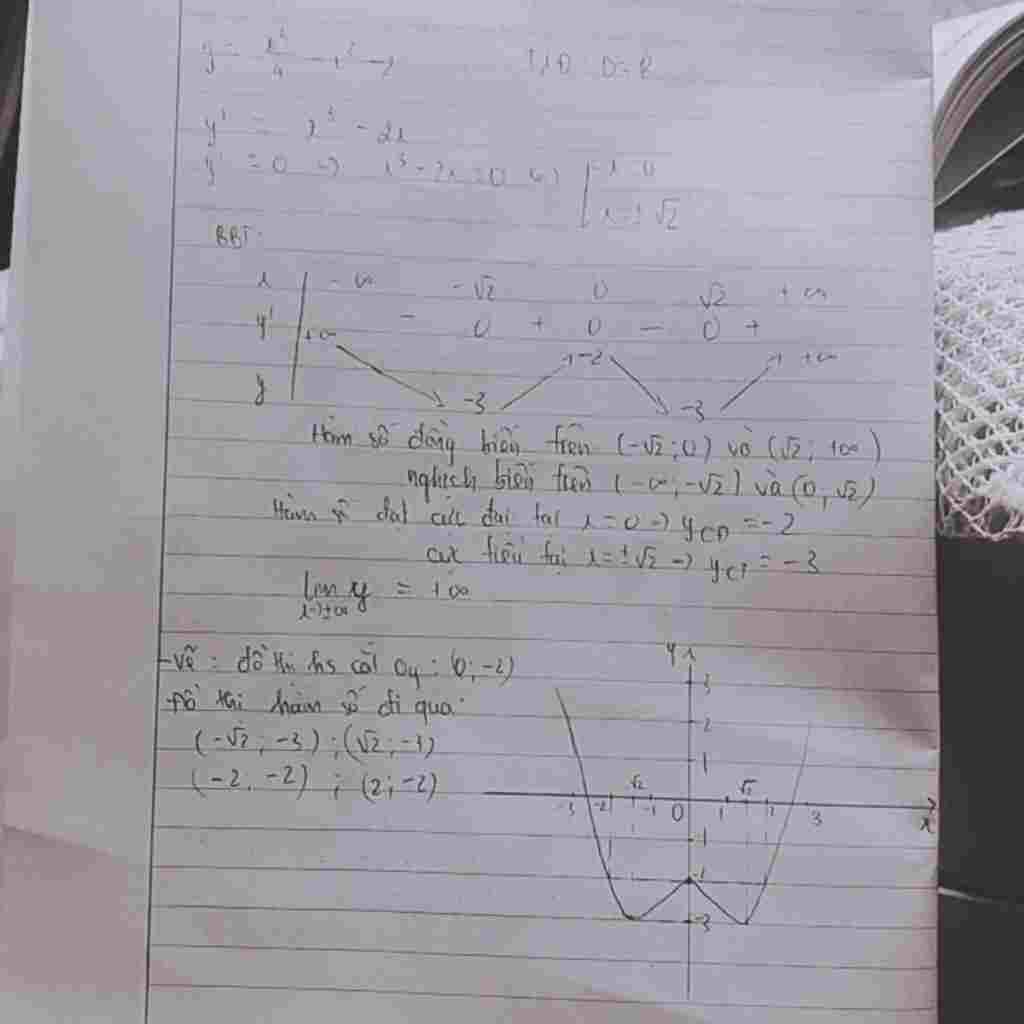 y = x⁴/4 - x² - 2 TXĐ D = R
y' = x³ - 2x
y' = 0 => x³ - 2x = 0 <=> [ x = 0
x = ±√2
BBT:
x -∞ -√2 0 √2 +∞
y' - 0 + 0 - 0 +
+∞ -2 +∞
y -3 -3
Hàm số đồng biến trên (-√2; 0) và (√2; +∞)
nghịch biến trên (-∞; -√2) và (0, √2)
Hàm số đạt cực đại tại x = 0 -> yCĐ = -2
cực tiểu tại x = ±√2 -> yCT = -3
lim y = +∞
x->±∞
- Vẽ: đồ thị hs cắt Oy: (0; -2)
Đồ thị hàm số đi qua:
(-√2; -3); (√2; -3)
(-2, -2); (2; -2)
y
3
2
1
√2 √2
-3 -2 -1 0 1 2 3 x
-1
-2
-3